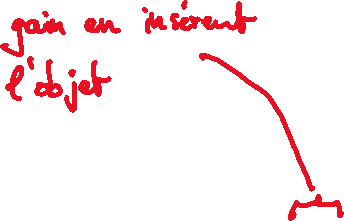 gain en insérent
l'objet